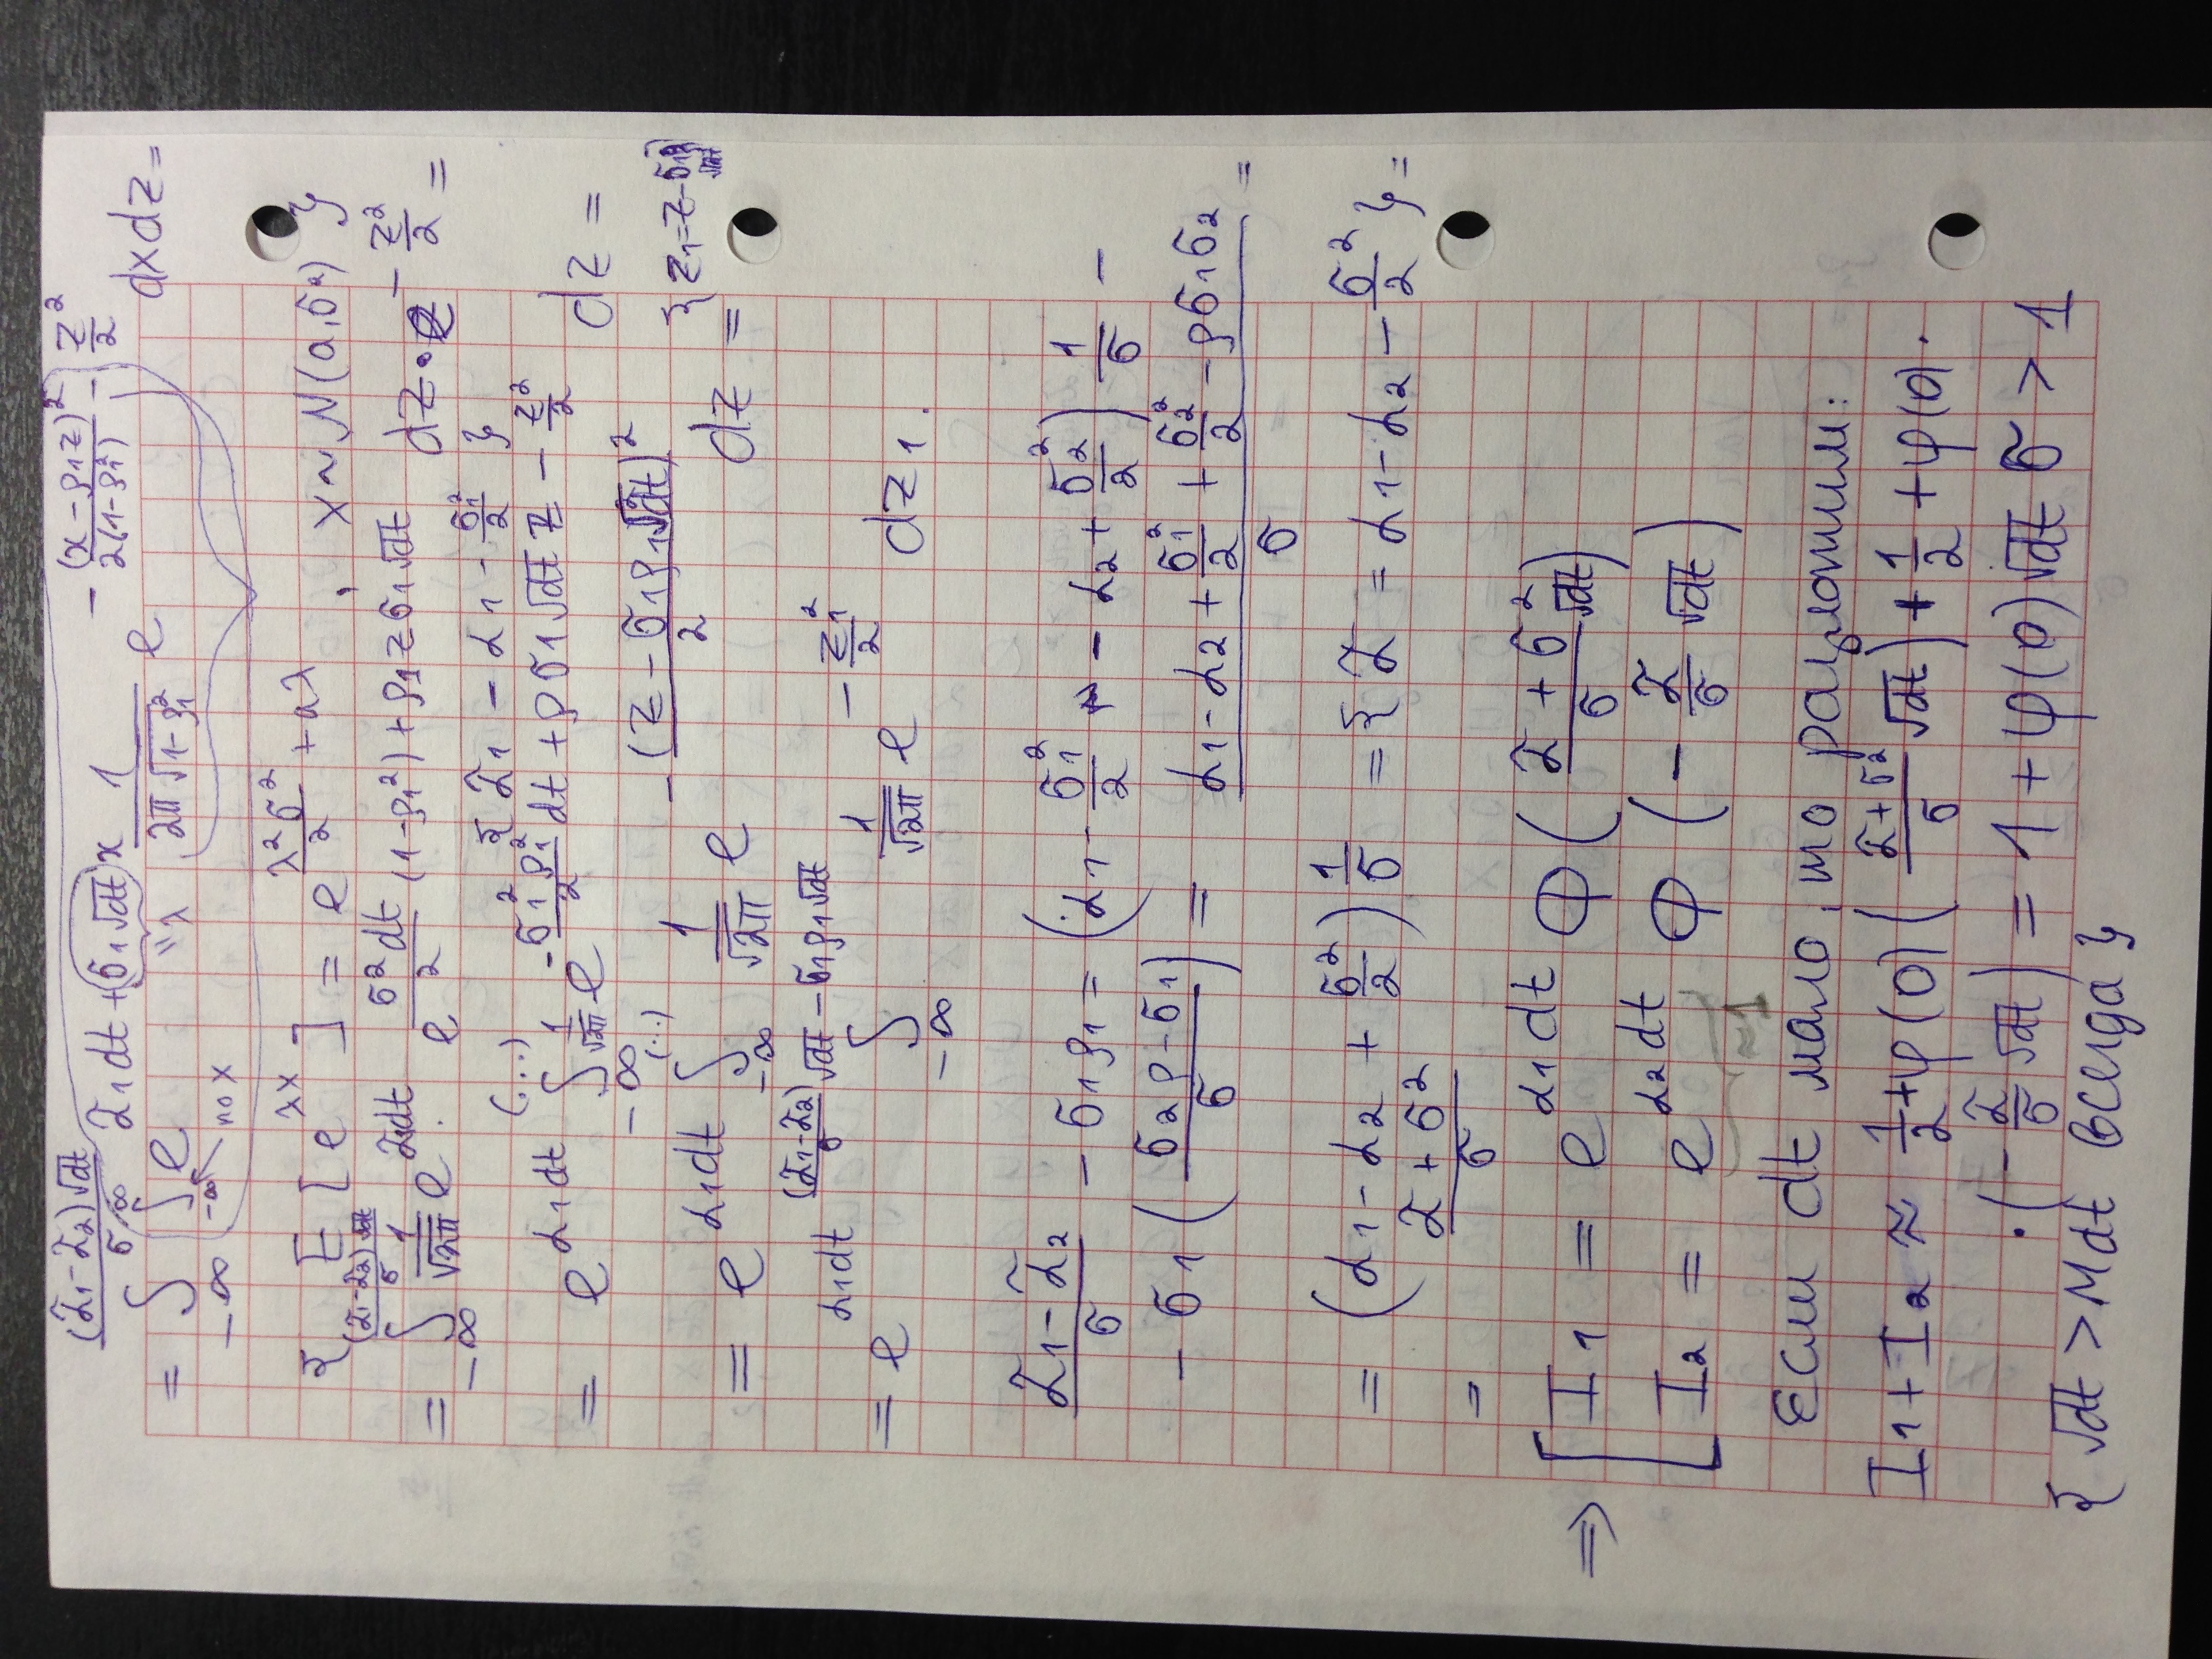 (α̃₁-α̃₂)√dt / σ
= ∫_{-∞} ∫_{-∞}^{∞} e^{α̃₁dt + (σ₁√dt)x} 1/(2π√(1-ρ₁²)) e^{-(x-ρ₁z)²/(2(1-ρ₁²)) - z²/2} dxdz =
по x "λ
{ E[e^{λx}] = e^{λ²σ²/2 + aλ}, x~N(a,σ²) }
= ∫_{-∞}^{(α̃₁-α̃₂)√dt/σ} 1/√2π e^{α̃₁dt} · e^{σ²dt/2 (1-ρ₁²) + ρ₁zσ₁√dt} dz · e^{-z²/2} =
{ α̃₁ = α₁ - σ₁²/2 }
= e^{α₁dt} ∫_{-∞}^{(...)} 1/√2π e^{-σ₁²ρ₁²/2 dt + ρσ₁√dt z - z²/2} dz =
= e^{α₁dt} ∫_{-∞}^{(...)} 1/√2π e^{-(z-σ₁ρ₁√dt)²/2} dz = { z₁=z-σ₁ρ₁√dt }
= e^{α₁dt} ∫_{-∞}^{(α̃₁-α̃₂)/σ √dt - σ₁ρ₁√dt} 1/√2π e^{-z₁²/2} dz₁.
(α̃₁-α̃₂)/σ - σ₁ρ₁ = (α₁ - σ₁²/2 - α₂ + σ₂²/2) 1/σ -
- σ₁ (σ₂ρ-σ₁)/σ) = (α₁-α₂ + σ₁²/2 + σ₂²/2 - ρσ₁σ₂)/σ =
= (α₁-α₂ + σ²/2) 1/σ = { α̃ = α₁-α₂ - σ²/2 } =
= (α̃+σ²)/σ
⇒ [ I₁ = e^{α₁dt} Φ( (α̃+σ²)/σ √dt )
I₂ = e^{α₂dt} Φ( - α̃/σ √dt )
≈1
Если dt мало, то разложим:
I₁+I₂ ≈ 1/2 + φ(0)( (α̃+σ²)/σ √dt ) + 1/2 + φ(0).
·( - α̃/σ √dt ) = 1 + φ(0)√dt σ > 1
{ √dt > Mdt всегда }